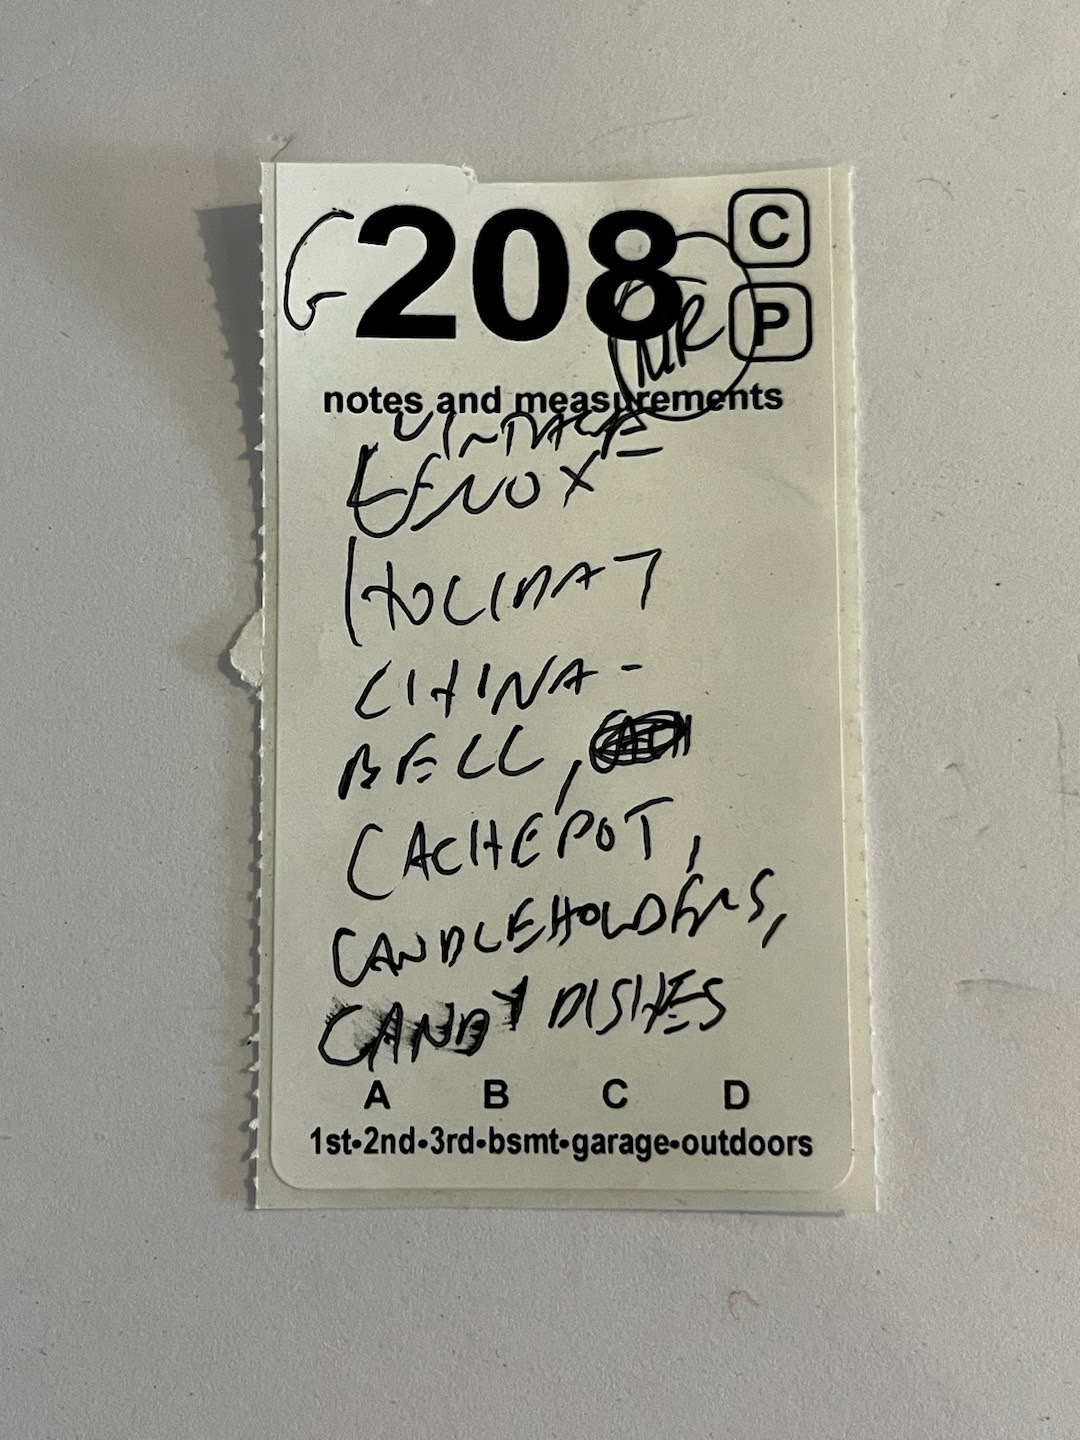 G 208 C
NR P
notes and measurements
VINTAGE
LENOX
HOLIDAY
CHINA -
BELL,
CACHEPOT,
CANDLEHOLDERS,
CANDY DISHES
A B C D
1st•2nd•3rd•bsmt•garage•outdoors